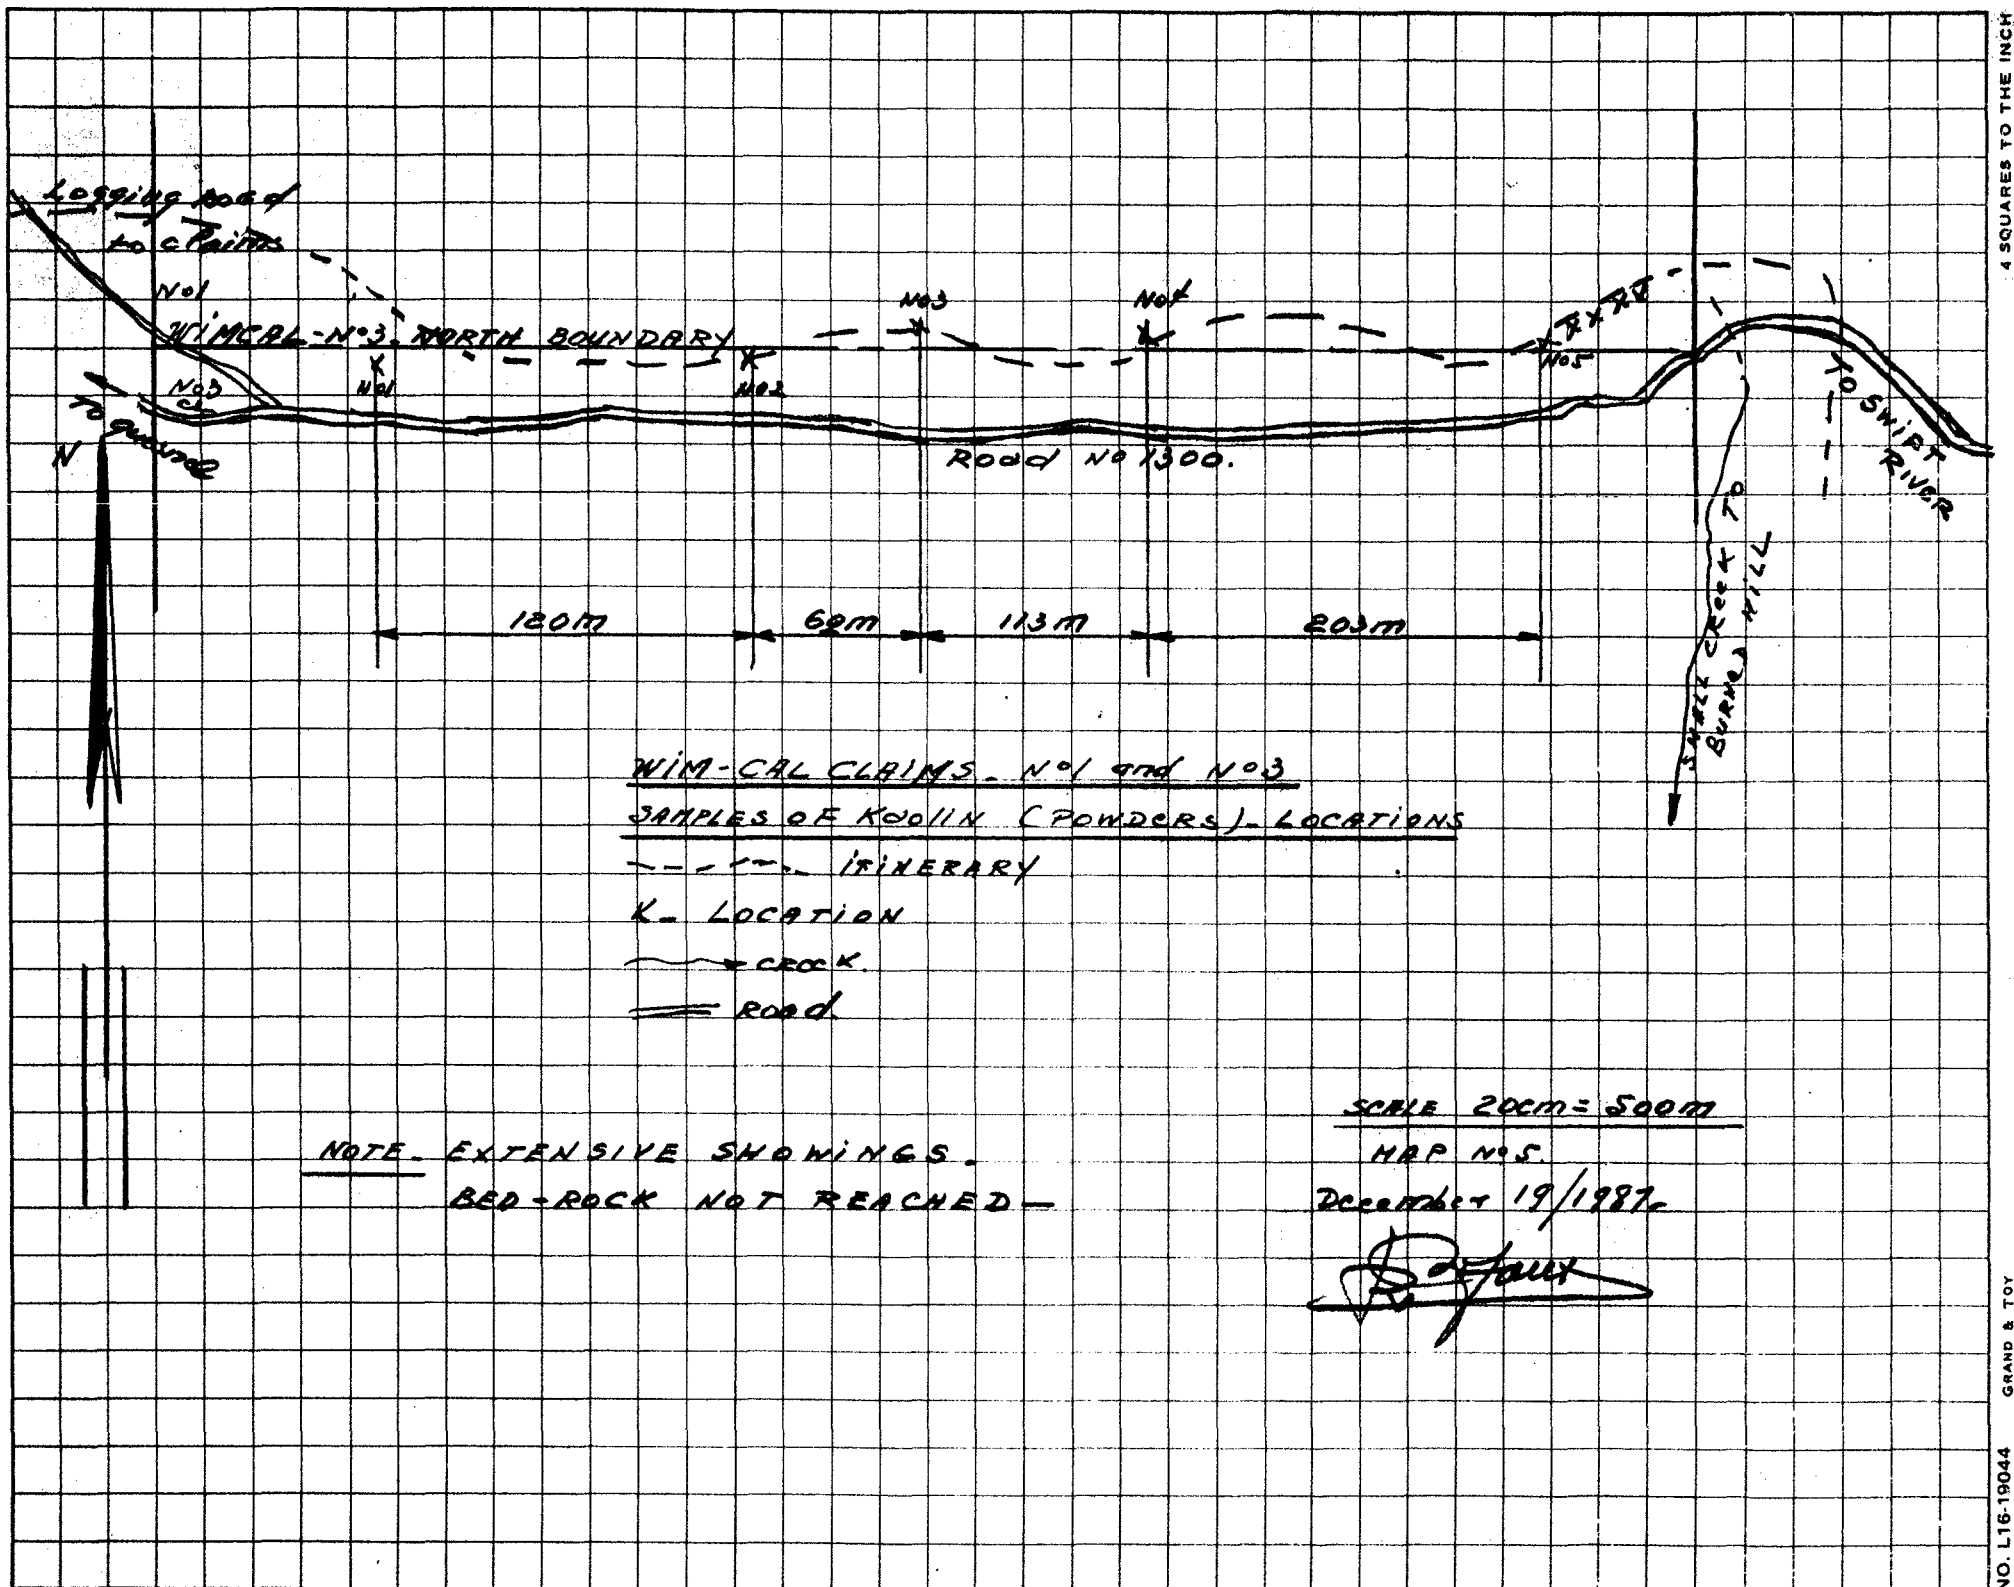 4 SQUARES TO THE INCH
Logging Road
to claims
No1
WIMCAL-No3. NORTH BOUNDARY
No3
To Quesnel
N
No1
No2
No3
No4
No5
Road No 1300.
TO SWIFT
RIVER
SMALL CREEK TO
BURNED HILL
120m
60m
113m
203m
WIM-CAL CLAIMS. No1 and No3
SAMPLES OF KAOLIN (POWDERS)- LOCATIONS
ITINERARY
X- LOCATION
CREEK.
ROAD.
SCALE 20cm = 500m
MAP No5.
December 19/1987-
NOTE- EXTENSIVE SHOWINGS.
BED-ROCK NOT REACHED-
NO. L16-19044 GRAND & TOY